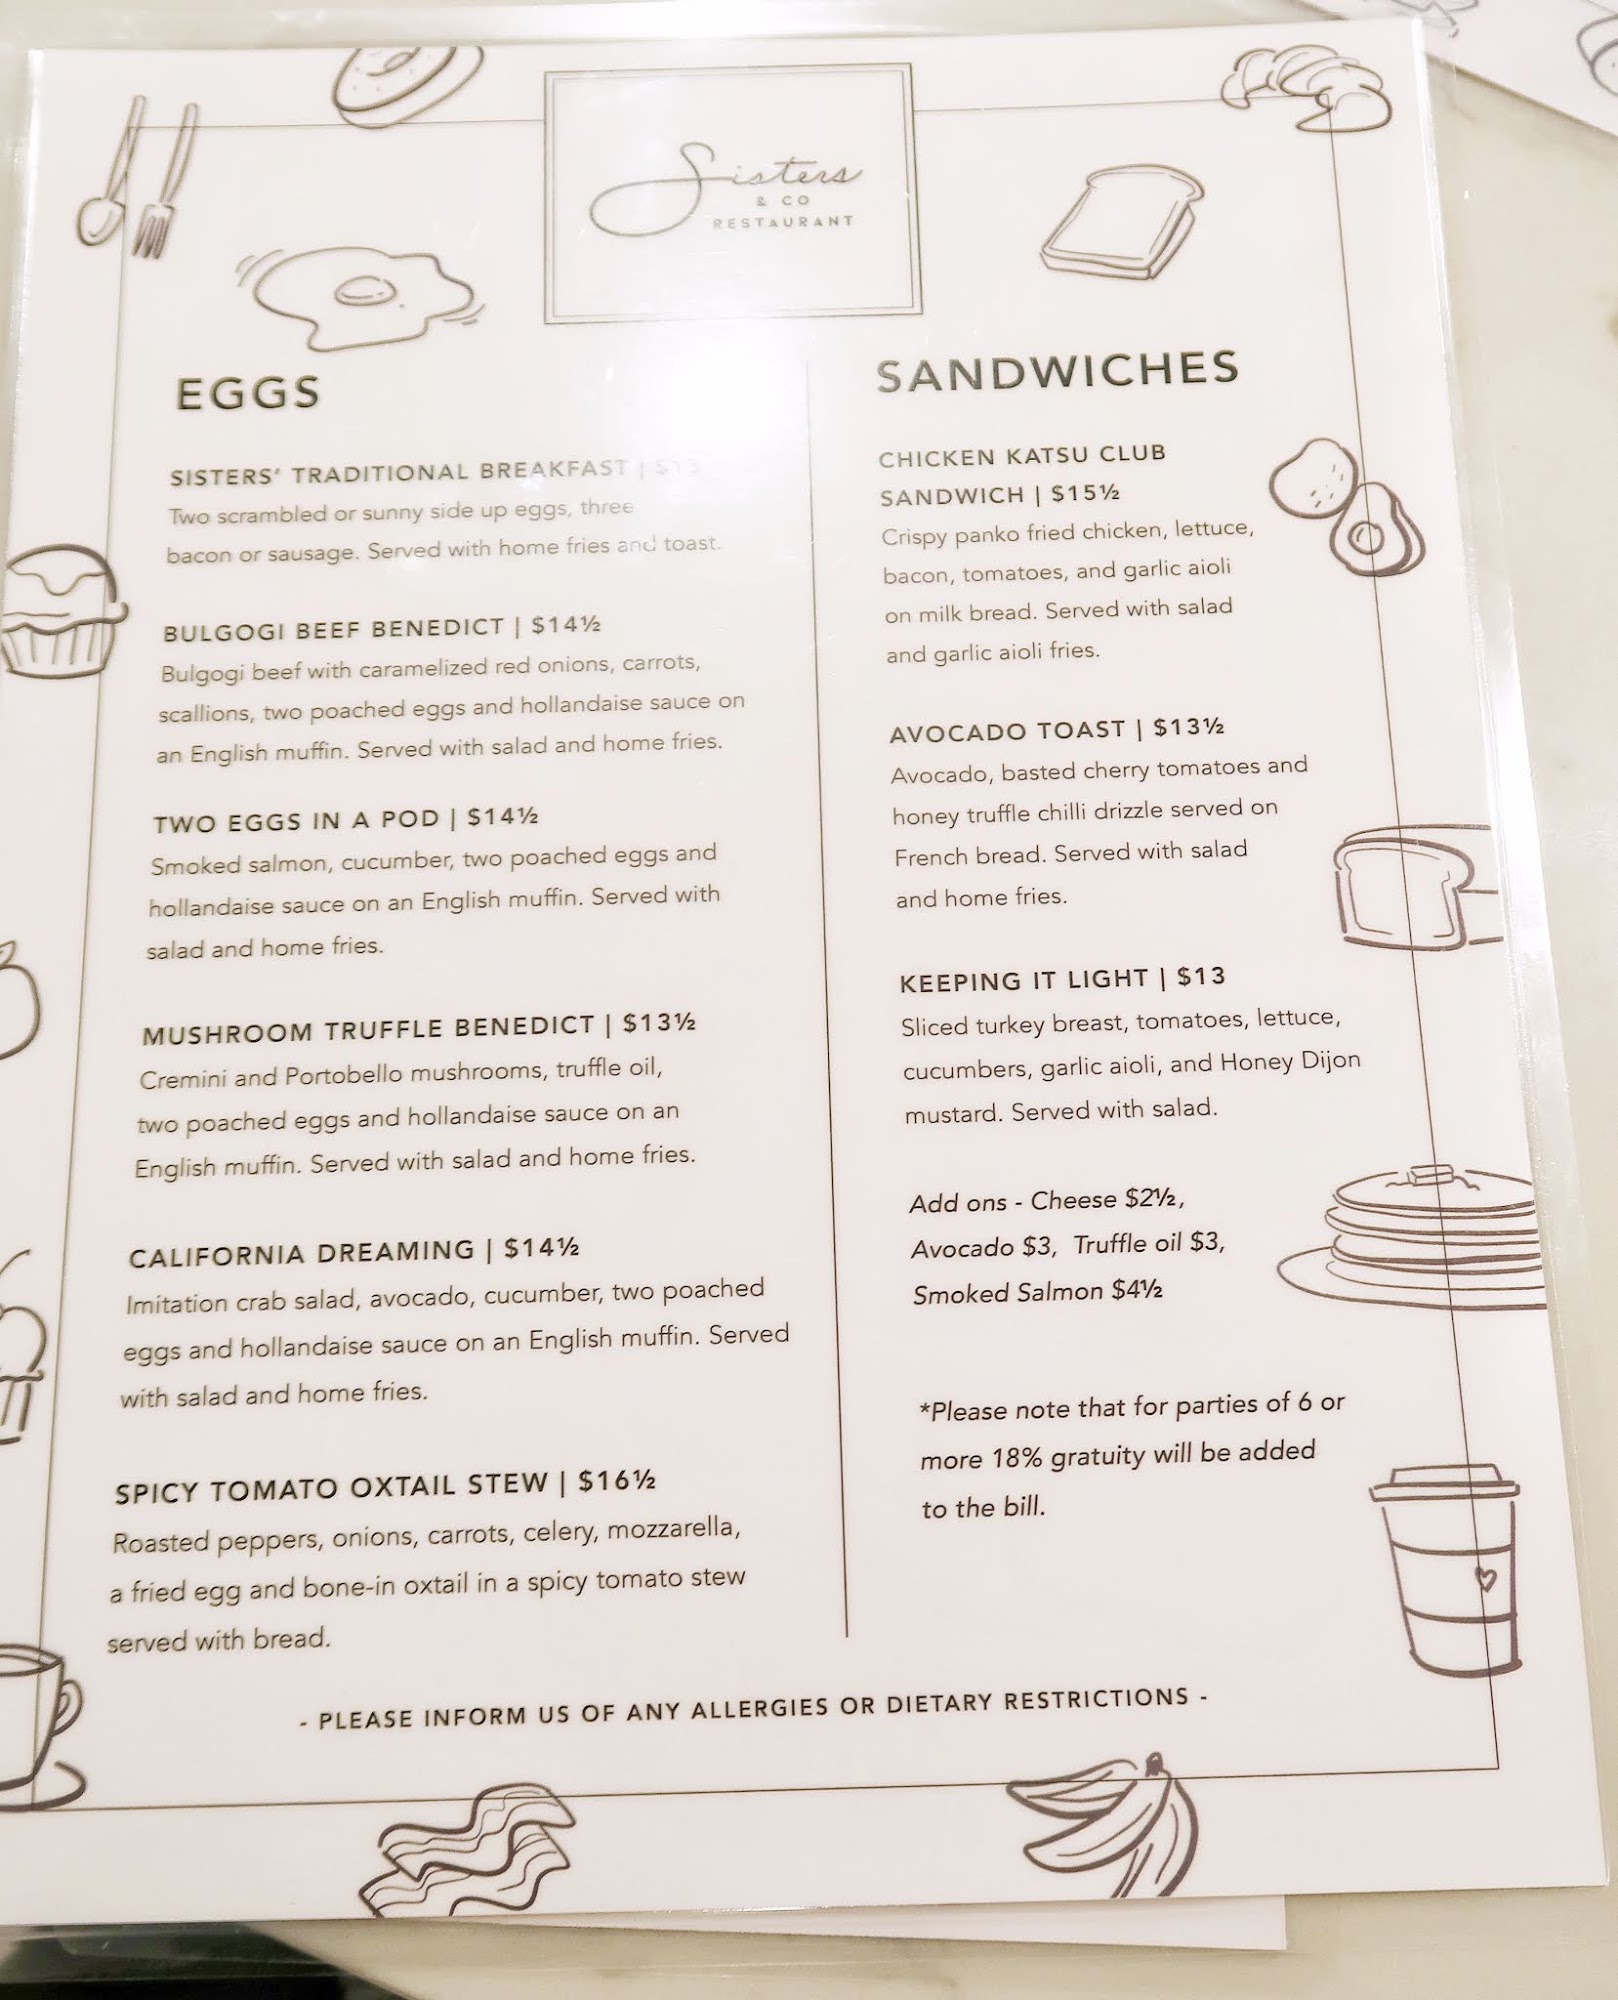 Sisters
& CO
RESTAURANT
EGGS
SISTERS' TRADITIONAL BREAKFAST |
Two scrambled or sunny side up eggs, three
bacon or sausage. Served with home fries and toast.
BULGOGI BEEF BENEDICT | $14½
Bulgogi beef with caramelized red onions, carrots,
scallions, two poached eggs and hollandaise sauce on
an English muffin. Served with salad and home fries.
TWO EGGS IN A POD | $14½
Smoked salmon, cucumber, two poached eggs and
hollandaise sauce on an English muffin. Served with
salad and home fries.
MUSHROOM TRUFFLE BENEDICT | $13½
Cremini and Portobello mushrooms, truffle oil,
two poached eggs and hollandaise sauce on an
English muffin. Served with salad and home fries.
CALIFORNIA DREAMING | $14½
Imitation crab salad, avocado, cucumber, two poached
eggs and hollandaise sauce on an English muffin. Served
with salad and home fries.
SPICY TOMATO OXTAIL STEW | $16½
Roasted peppers, onions, carrots, celery, mozzarella,
a fried egg and bone-in oxtail in a spicy tomato stew
served with bread.
SANDWICHES
CHICKEN KATSU CLUB
SANDWICH | $15½
Crispy panko fried chicken, lettuce,
bacon, tomatoes, and garlic aioli
on milk bread. Served with salad
and garlic aioli fries.
AVOCADO TOAST | $13½
Avocado, basted cherry tomatoes and
honey truffle chilli drizzle served on
French bread. Served with salad
and home fries.
KEEPING IT LIGHT | $13
Sliced turkey breast, tomatoes, lettuce,
cucumbers, garlic aioli, and Honey Dijon
mustard. Served with salad.
Add ons - Cheese $2½,
Avocado $3, Truffle oil $3,
Smoked Salmon $4½
*Please note that for parties of 6 or
more 18% gratuity will be added
to the bill.
- PLEASE INFORM US OF ANY ALLERGIES OR DIETARY RESTRICTIONS -